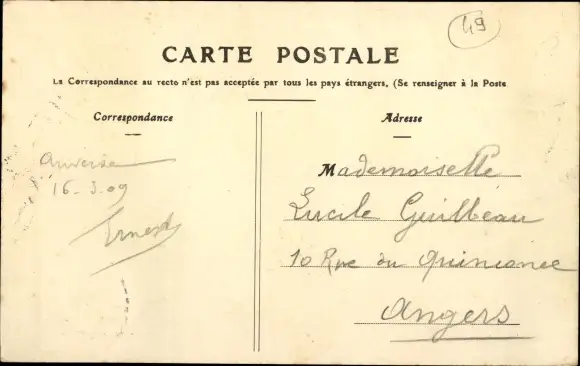 49
CARTE POSTALE
La Correspondance au recto n'est pas acceptée par tous les pays étrangers. (Se renseigner à la Poste
Correspondance
Adresse
16-3-09
Ernest
Mademoiselle
Lucile Guilbeau
10 Rue du Quinconce
Angers